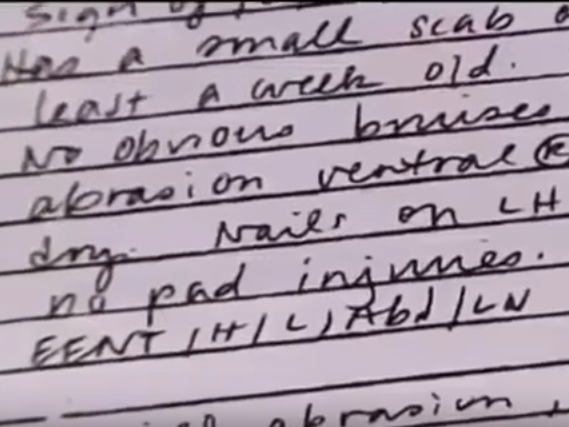 sign of
Has a small scab a
least a week old.
No obvious bruises
abrasion ventral Ⓡ
dry. Nails on LH
no pad injuries.
EENT/H/L/Abd/LN
abrasion,